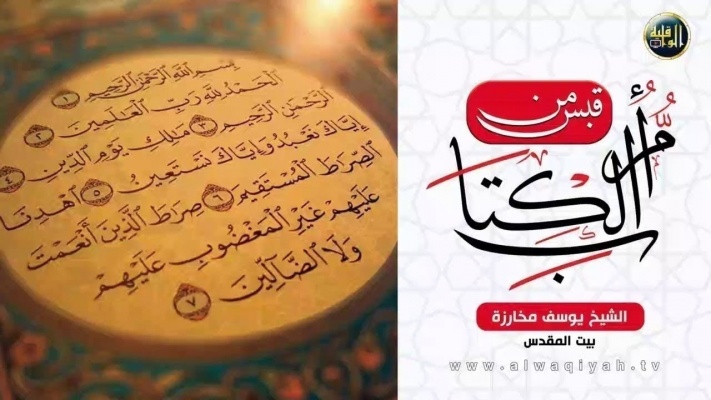 بِسْمِ ٱللَّهِ ٱلرَّحْمَٰنِ ٱلرَّحِيمِ ١
ٱلْحَمْدُ لِلَّهِ رَبِّ ٱلْعَٰلَمِينَ ٢
ٱلرَّحْمَٰنِ ٱلرَّحِيمِ ٣ مَٰلِكِ يَوْمِ ٱلدِّينِ ٤
إِيَّاكَ نَعْبُدُ وَإِيَّاكَ نَسْتَعِينُ ٥ ٱهْدِنَا
ٱلصِّرَٰطَ ٱلْمُسْتَقِيمَ ٦ صِرَٰطَ ٱلَّذِينَ أَنْعَمْتَ
عَلَيْهِمْ غَيْرِ ٱلْمَغْضُوبِ عَلَيْهِمْ
وَلَا ٱلضَّآلِّينَ ٧
الواقية
قبس من
أُمُّ الكتاب
الشيخ يوسف مخارزة
بيت المقدس
www.alwaqiyah.tv